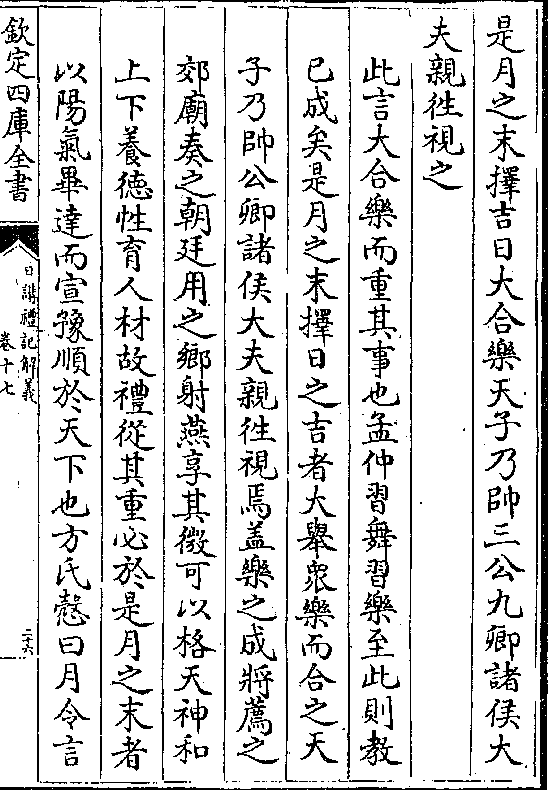 是月之末擇吉日大合樂天子乃帥三公九卿諸侯大
夫親徃視之
此言大合樂而重其事也孟仲習舞習樂至此則教
已成矣是月之末擇日之吉者大舉衆樂而合之天
子乃帥公卿諸侯大夫親徃視焉蓋樂之成將薦之
郊廟奏之朝廷用之鄉射燕享其微可以格天神和
上下養德性育人材故禮從其重必於是月之末者
以陽氣畢達而宣豫順於天下也方氏慤曰月令言
欽定四庫全書
日講禮記解義
卷十七
二十六